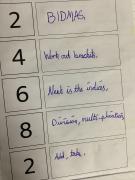 2 BIDMAS.
4 Work out brackets.
6 Next is the indices,
8 Division, multi-plication,
2 Add, take.